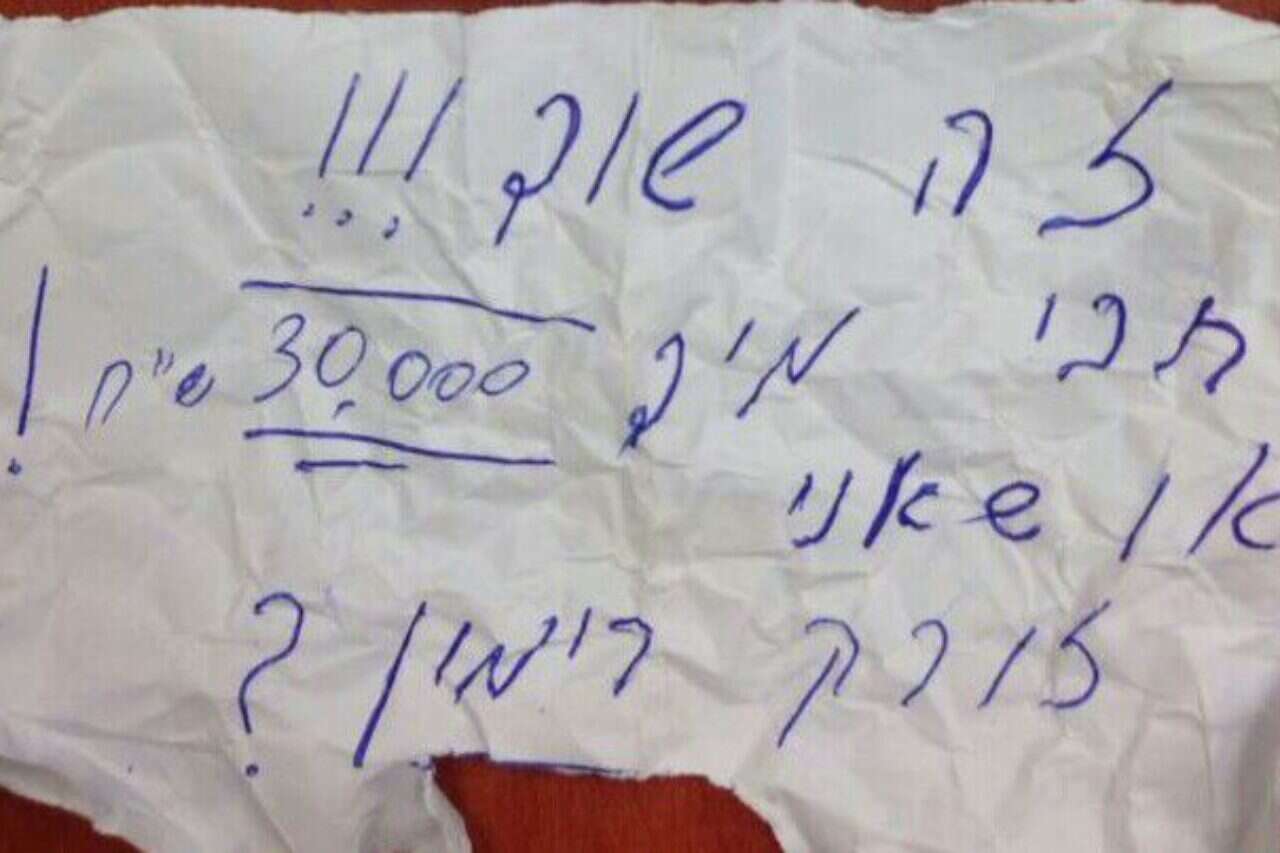 זה שוד !!!
תבי מיד 30,000 ש"ח !
או שאני
זורק רימון ?